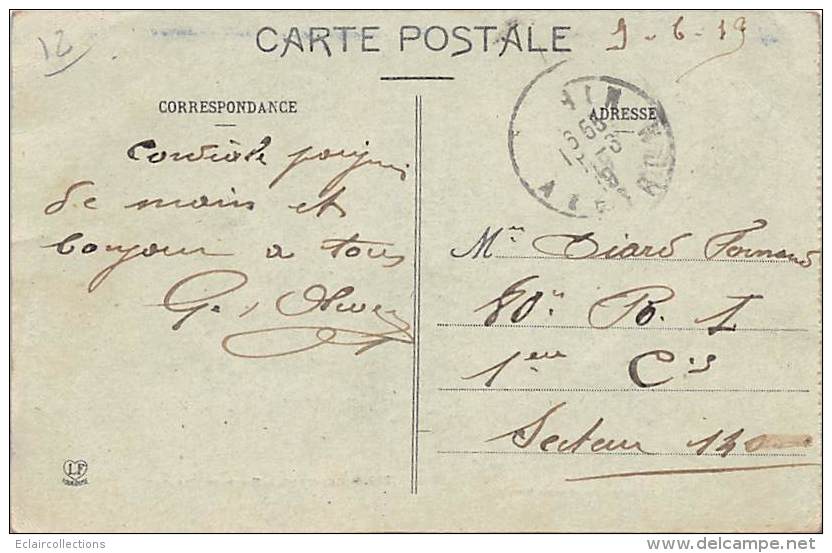 12
CARTE POSTALE
9-6-19
CORRESPONDANCE
ADRESSE
Cordiale poignée
de main et
bonjour a tous
G.
Mr Diard Fernand
80e R. I
1ere Cie
Secteur 140
LF
TOULOUSE
Eclaircollections
delcampe.net